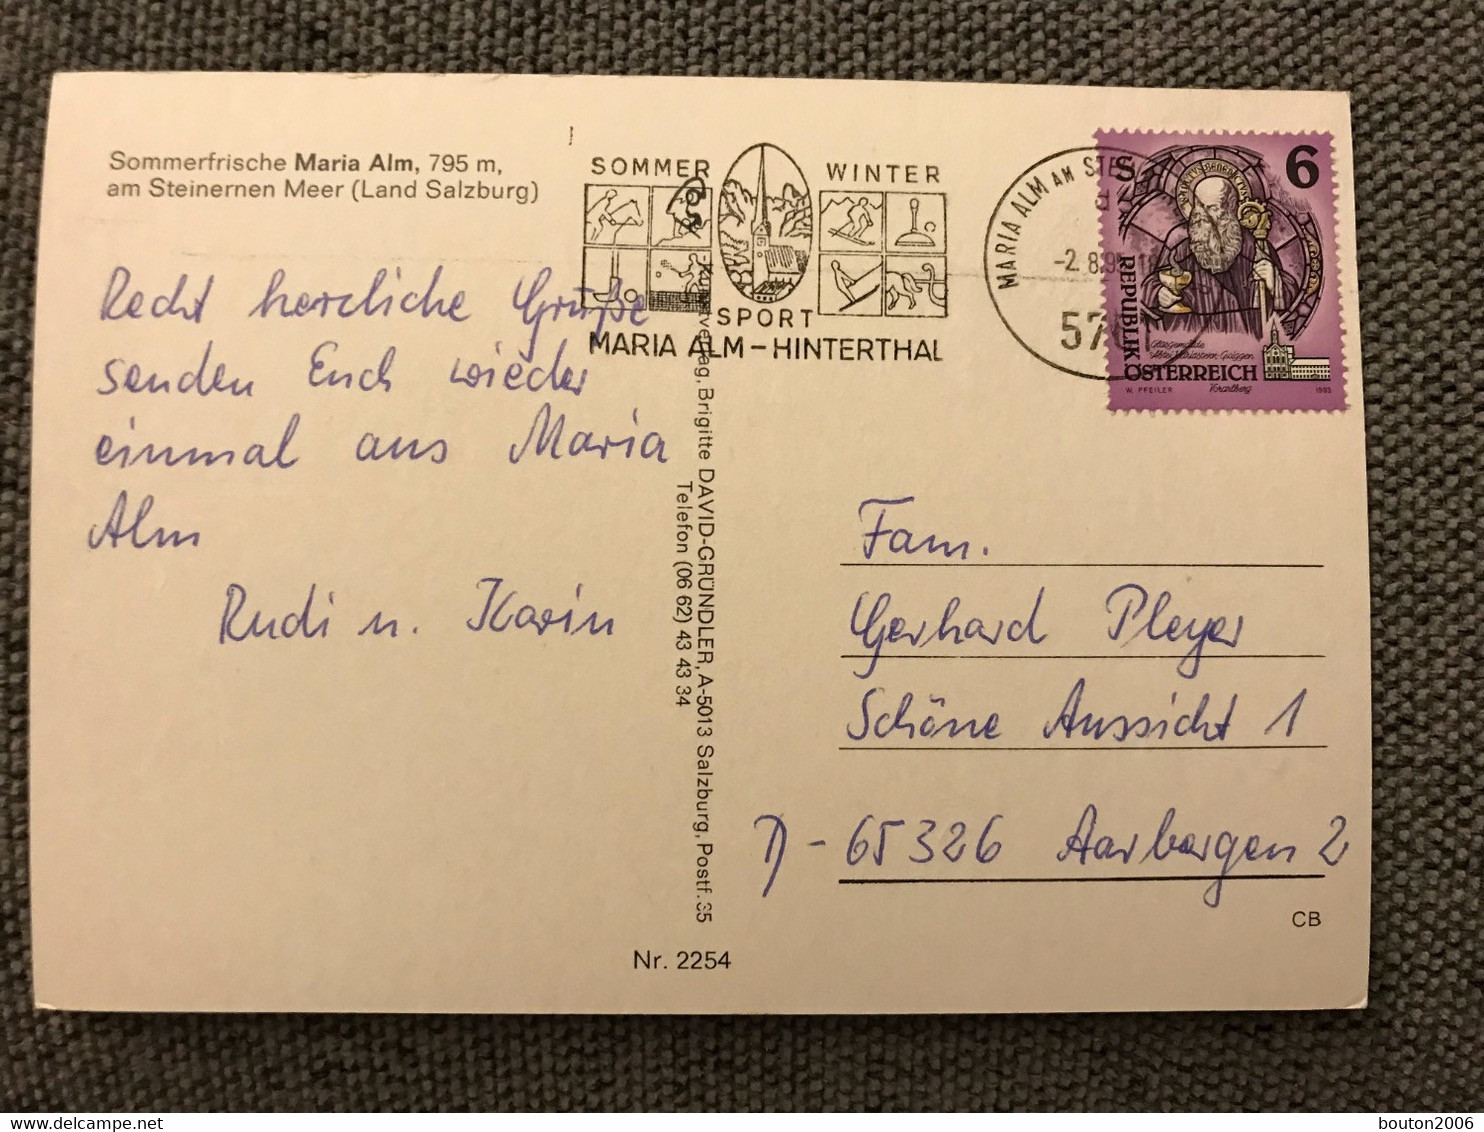 Sommerfrische Maria Alm, 795 m,
am Steinernen Meer (Land Salzburg)
Recht herzliche Grüße
senden Euch wieder
einmal aus Maria
Alm
Rudi u. Karin
SOMMER
WINTER
SPORT
MARIA ALM-HINTERTHAL
MARIA ALM AM
-2.8.9
6
REPUBLIK
ÖSTERREICH
W. PFEILER
Vorarlberg
1993
Kunstverlag, Brigitte DAVID-GRÜNDLER, A-5013 Salzburg, Postf. 35
Telefon (06 62) 43 43 34
Fam.
Gerhard Pleyer
Schöne Aussicht 1
D-65326 Aarbergen 2
CB
Nr. 2254
delcampe.net
bouton2006